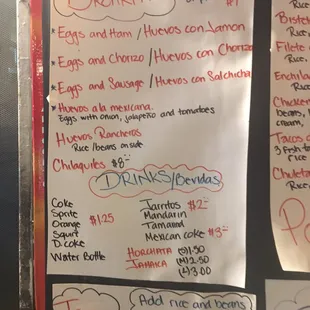 * Eggs and Ham / Huevos con Jamon
* Eggs and Chorizo / Huevos con Chorizo
* Eggs and Sausage / Huevos con Salchicha
* Huevos a la mexicana.
Eggs with onion, jalapeño and tomatoes
Huevos Rancheros
Rice/beans on side
Chilaquiles $8-
DRINKS/Bevidas
Coke
Sprite
Orange
Squirt
D. coke
Water Bottle
$1.25
Jarritos $2-
Mandarin
Tamarind
Mexican coke $3-
HORCHATA (S)1.50
JAMAICA (M)2.50
(L)3.00
Add rice and beans
Rice,
Filete
Rice
Enchilad
Rice
Chicken
beans,
cream,
Tacos
3 fish
rice
Chuleta
Rice,